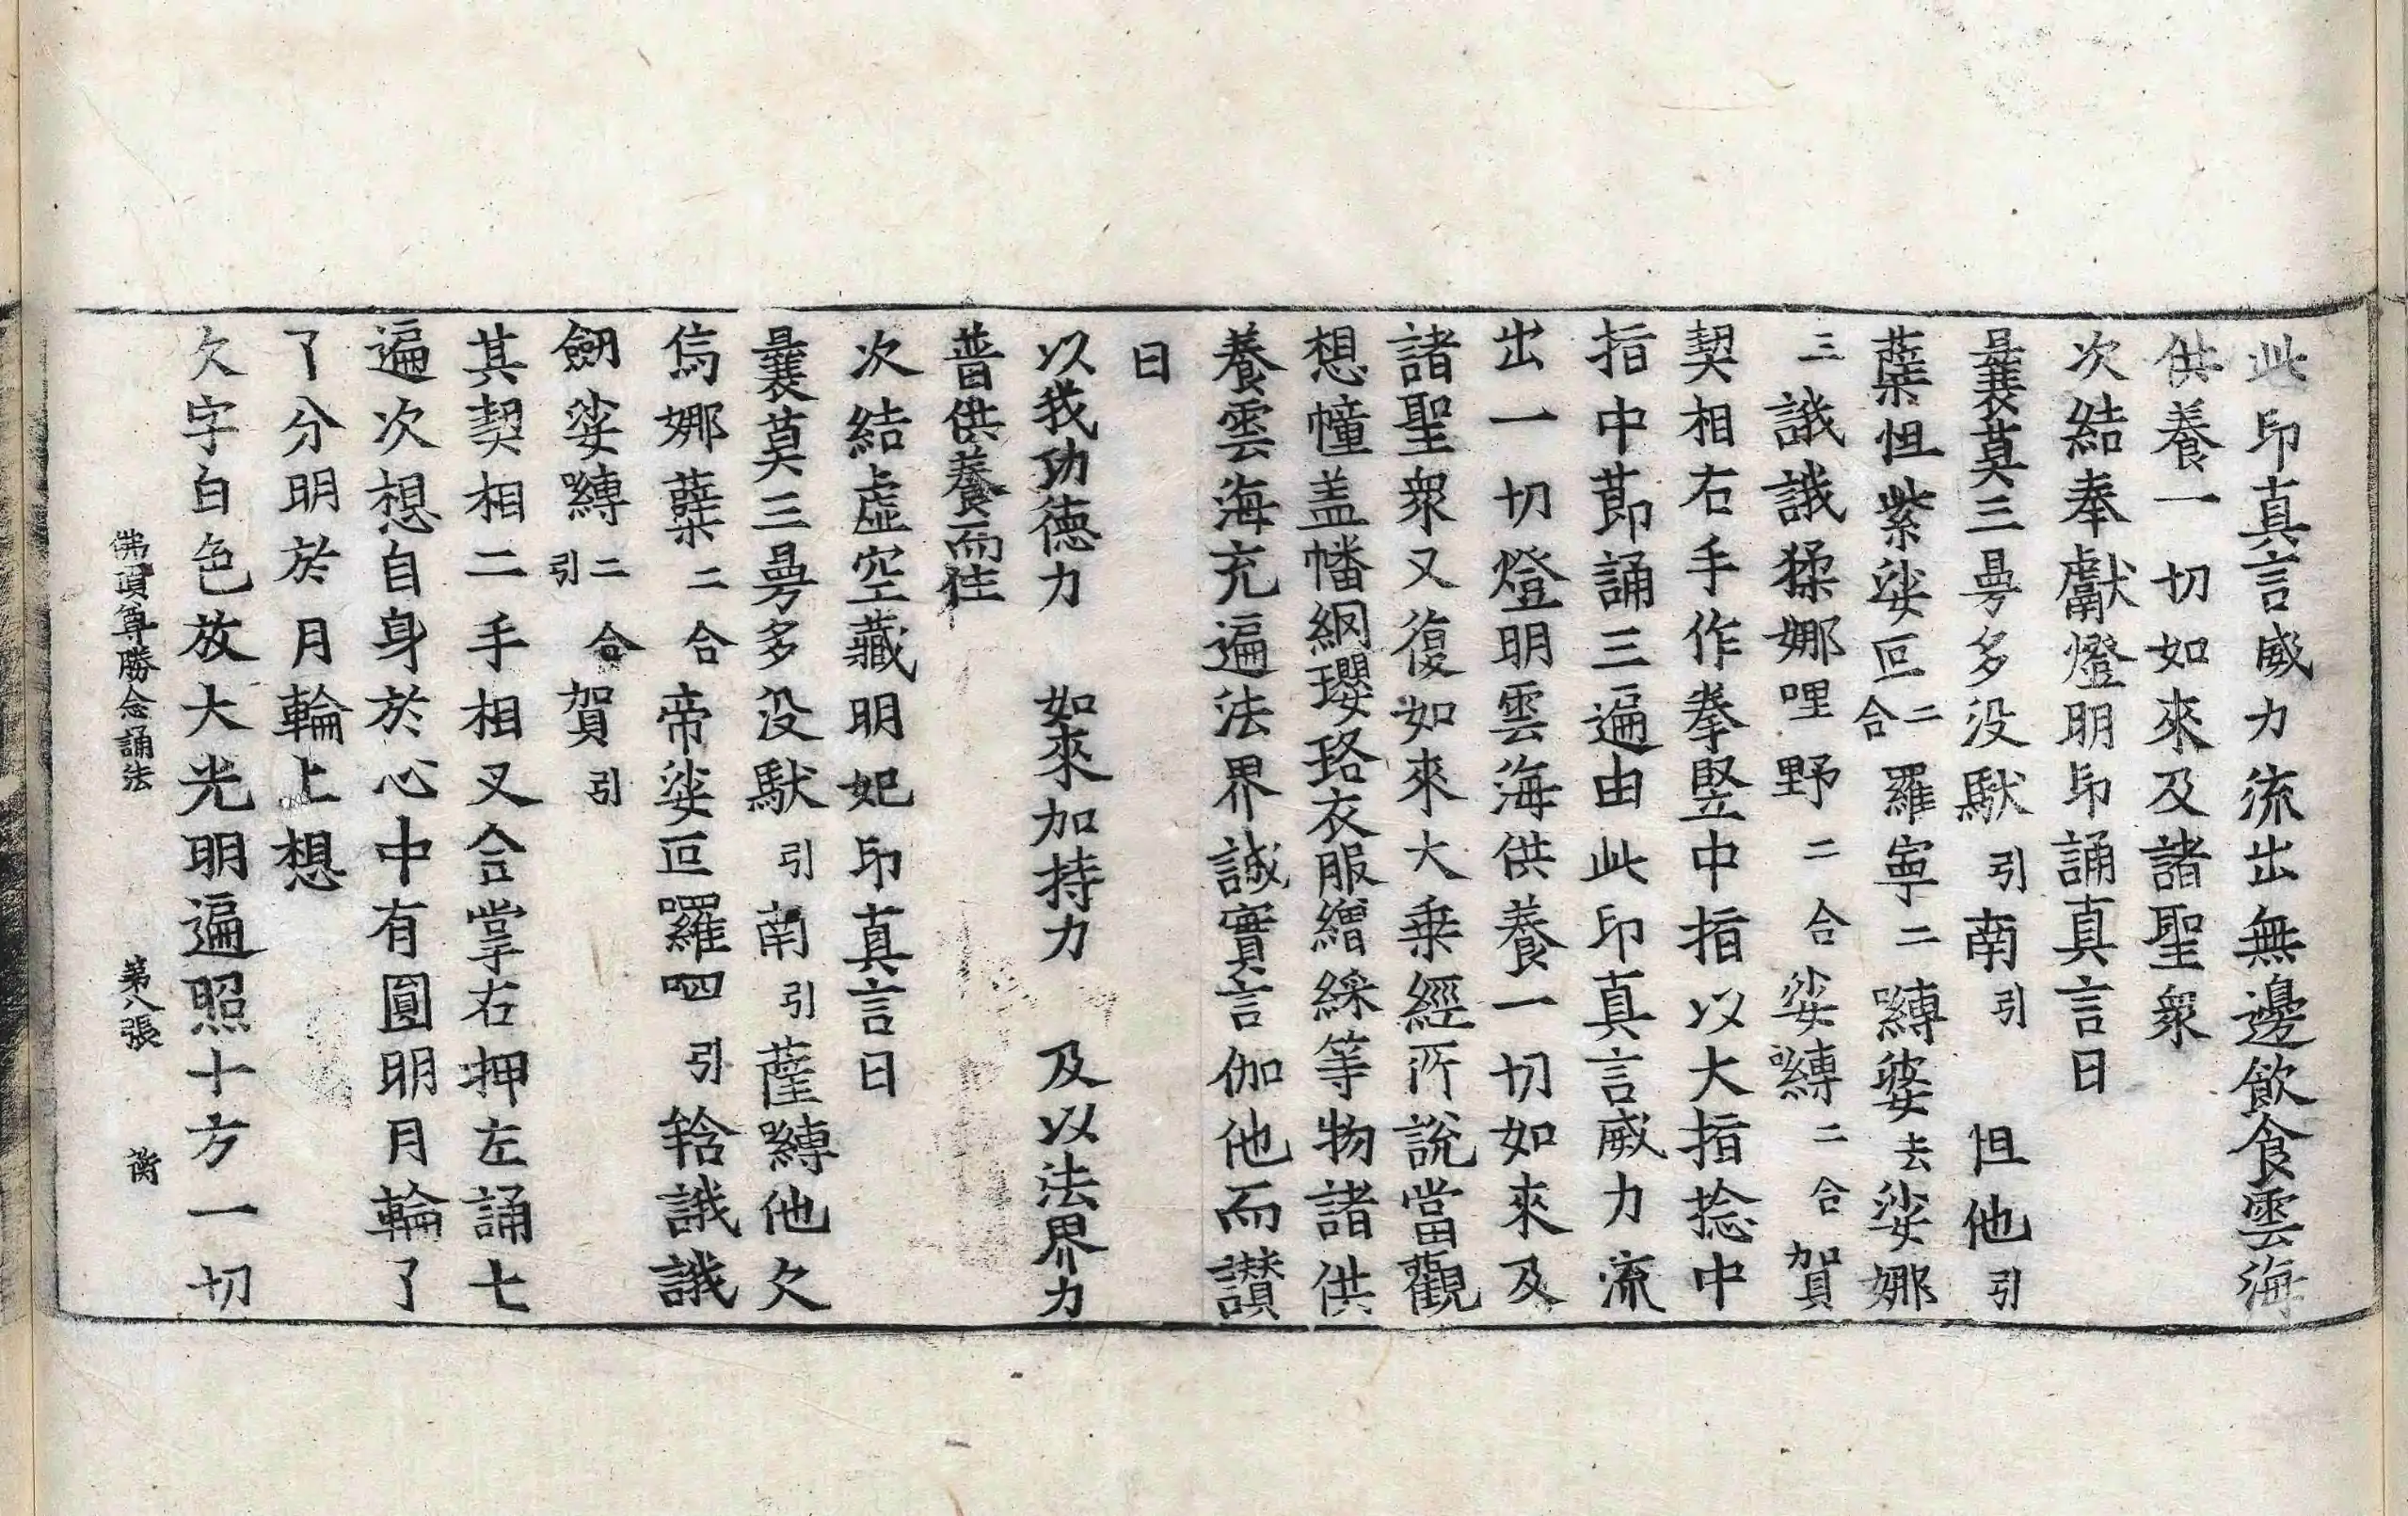 此印真言威力流出無邊飲食雲海
供養一切如來及諸聖衆
次結奉獻燈明印誦真言曰
曩莫三曼多没馱引南引怛他引
蘖怛紫娑叵二合羅寧二嚩婆去娑娜
三誐誐猱娜哩野二合娑嚩二合賀
契相右手作拳竪中指以大指捻中
指中莭誦三遍由此印真言威力流
出一切燈明雲海供養一切如來及
諸聖衆又復如來大乗經所說當觀
想幢盖幡網瓔珞衣服繒綵等物諸供
養雲海充遍法界誠實言伽他而讃
曰
以我功德力　如來加持力　及以法界力
普供養而住
次結虛空藏明妃印真言曰
曩莫三曼多没馱引南引薩嚩他欠
嗢娜蘖二合帝娑叵囉呬引䤴誐誐
劒娑嚩二合引賀引
其契相二手相叉合掌右押左誦七
遍次想自身於心中有圓明月輪了
了分明於月輪上想
欠字白色放大光明遍照十方一切
佛頂尊勝念誦法　第八張　衡